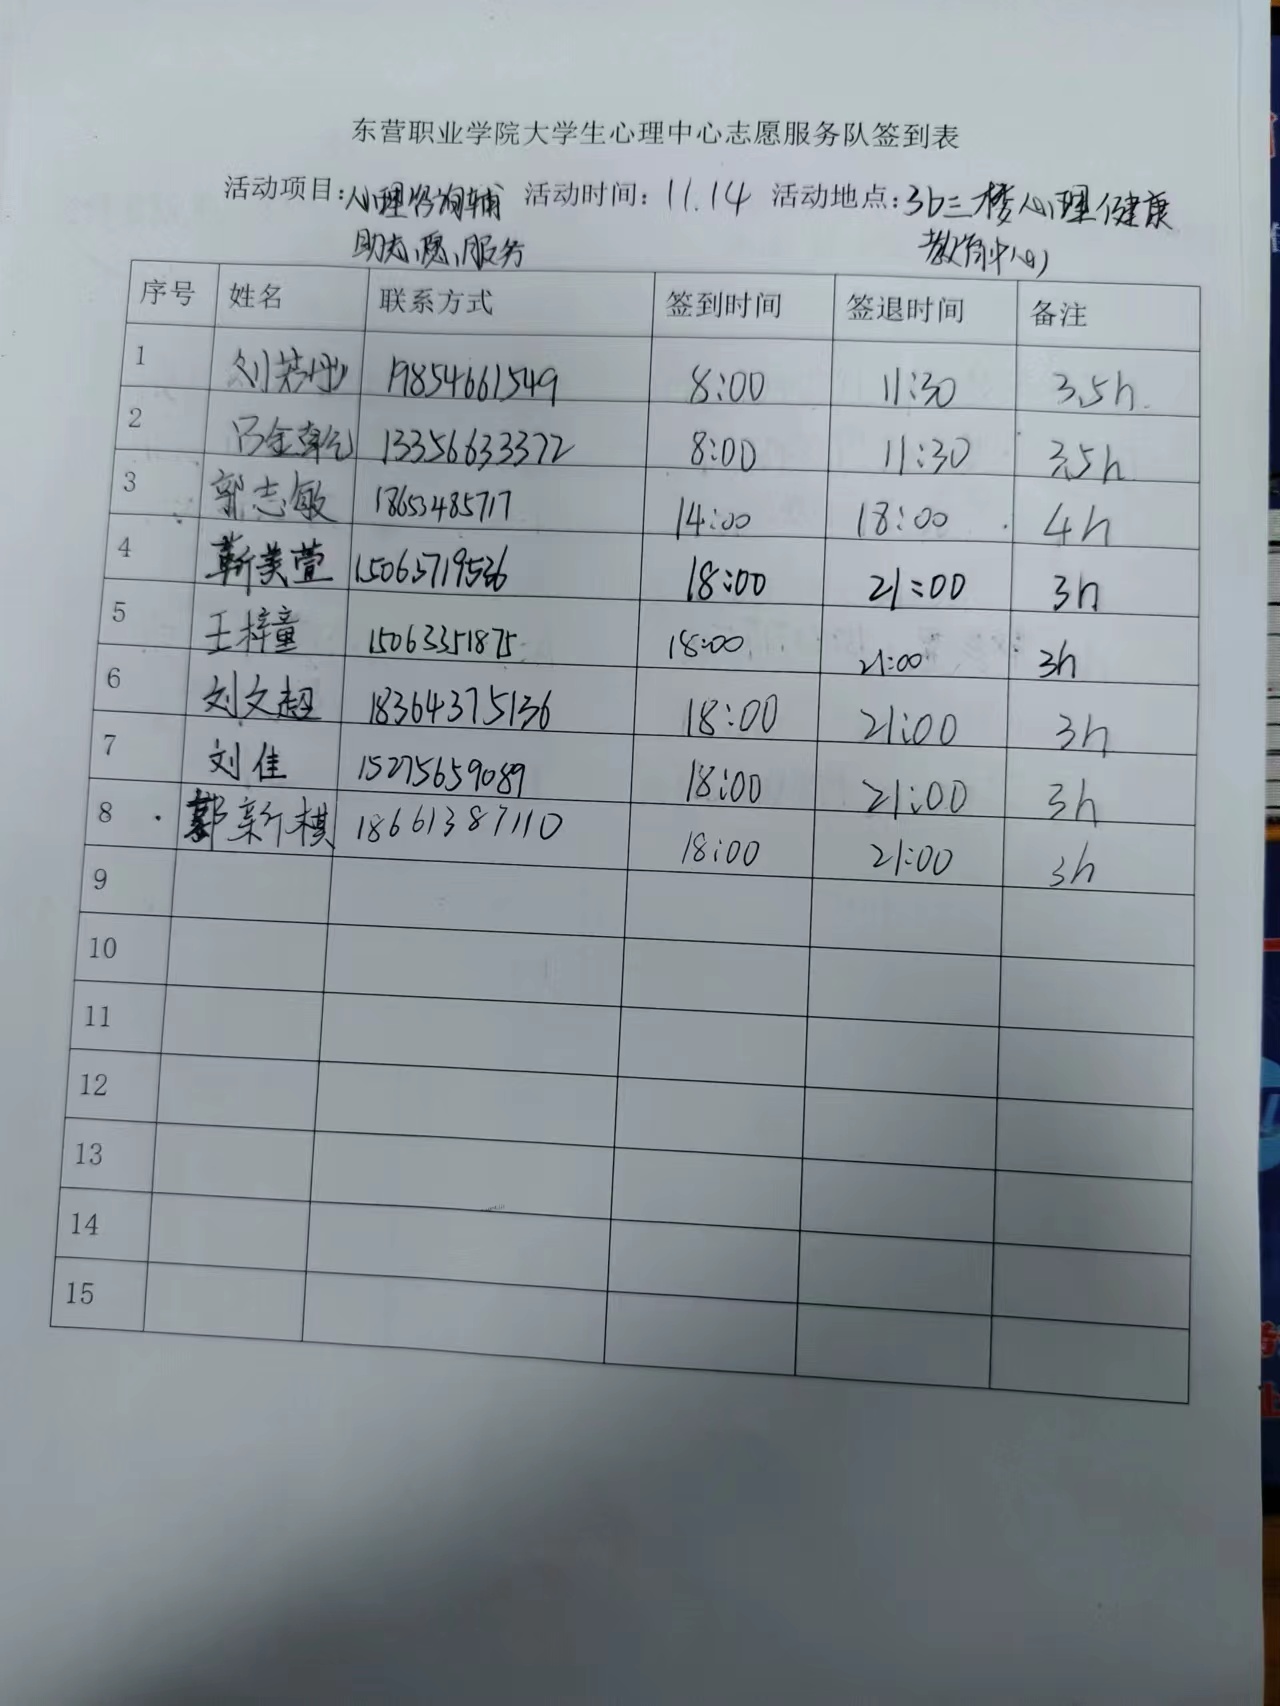 东营职业学院大学生心理中心志愿服务队签到表
活动项目:心理咨询辅 活动时间: 11.14 活动地点: 3b三楼心理健康
助志愿服务 教育中心
序号 姓名 联系方式 签到时间 签退时间 备注
1 刘 19854661549 8:00 11:30 3.5h
2 13356633372 8:00 11:30 3.5h
3 郭志敏 18653485717 14:00 18:00 4h
4 靳美萱 15065719536 18:00 21:00 3h
5 王梓童 15063351875 18:00 21:00 3h
6 刘文超 18364375136 18:00 21:00 3h
7 刘佳 15275659089 18:00 21:00 3h
8 郭新棋 18661387110 18:00 21:00 3h
9
10
11
12
13
14
15